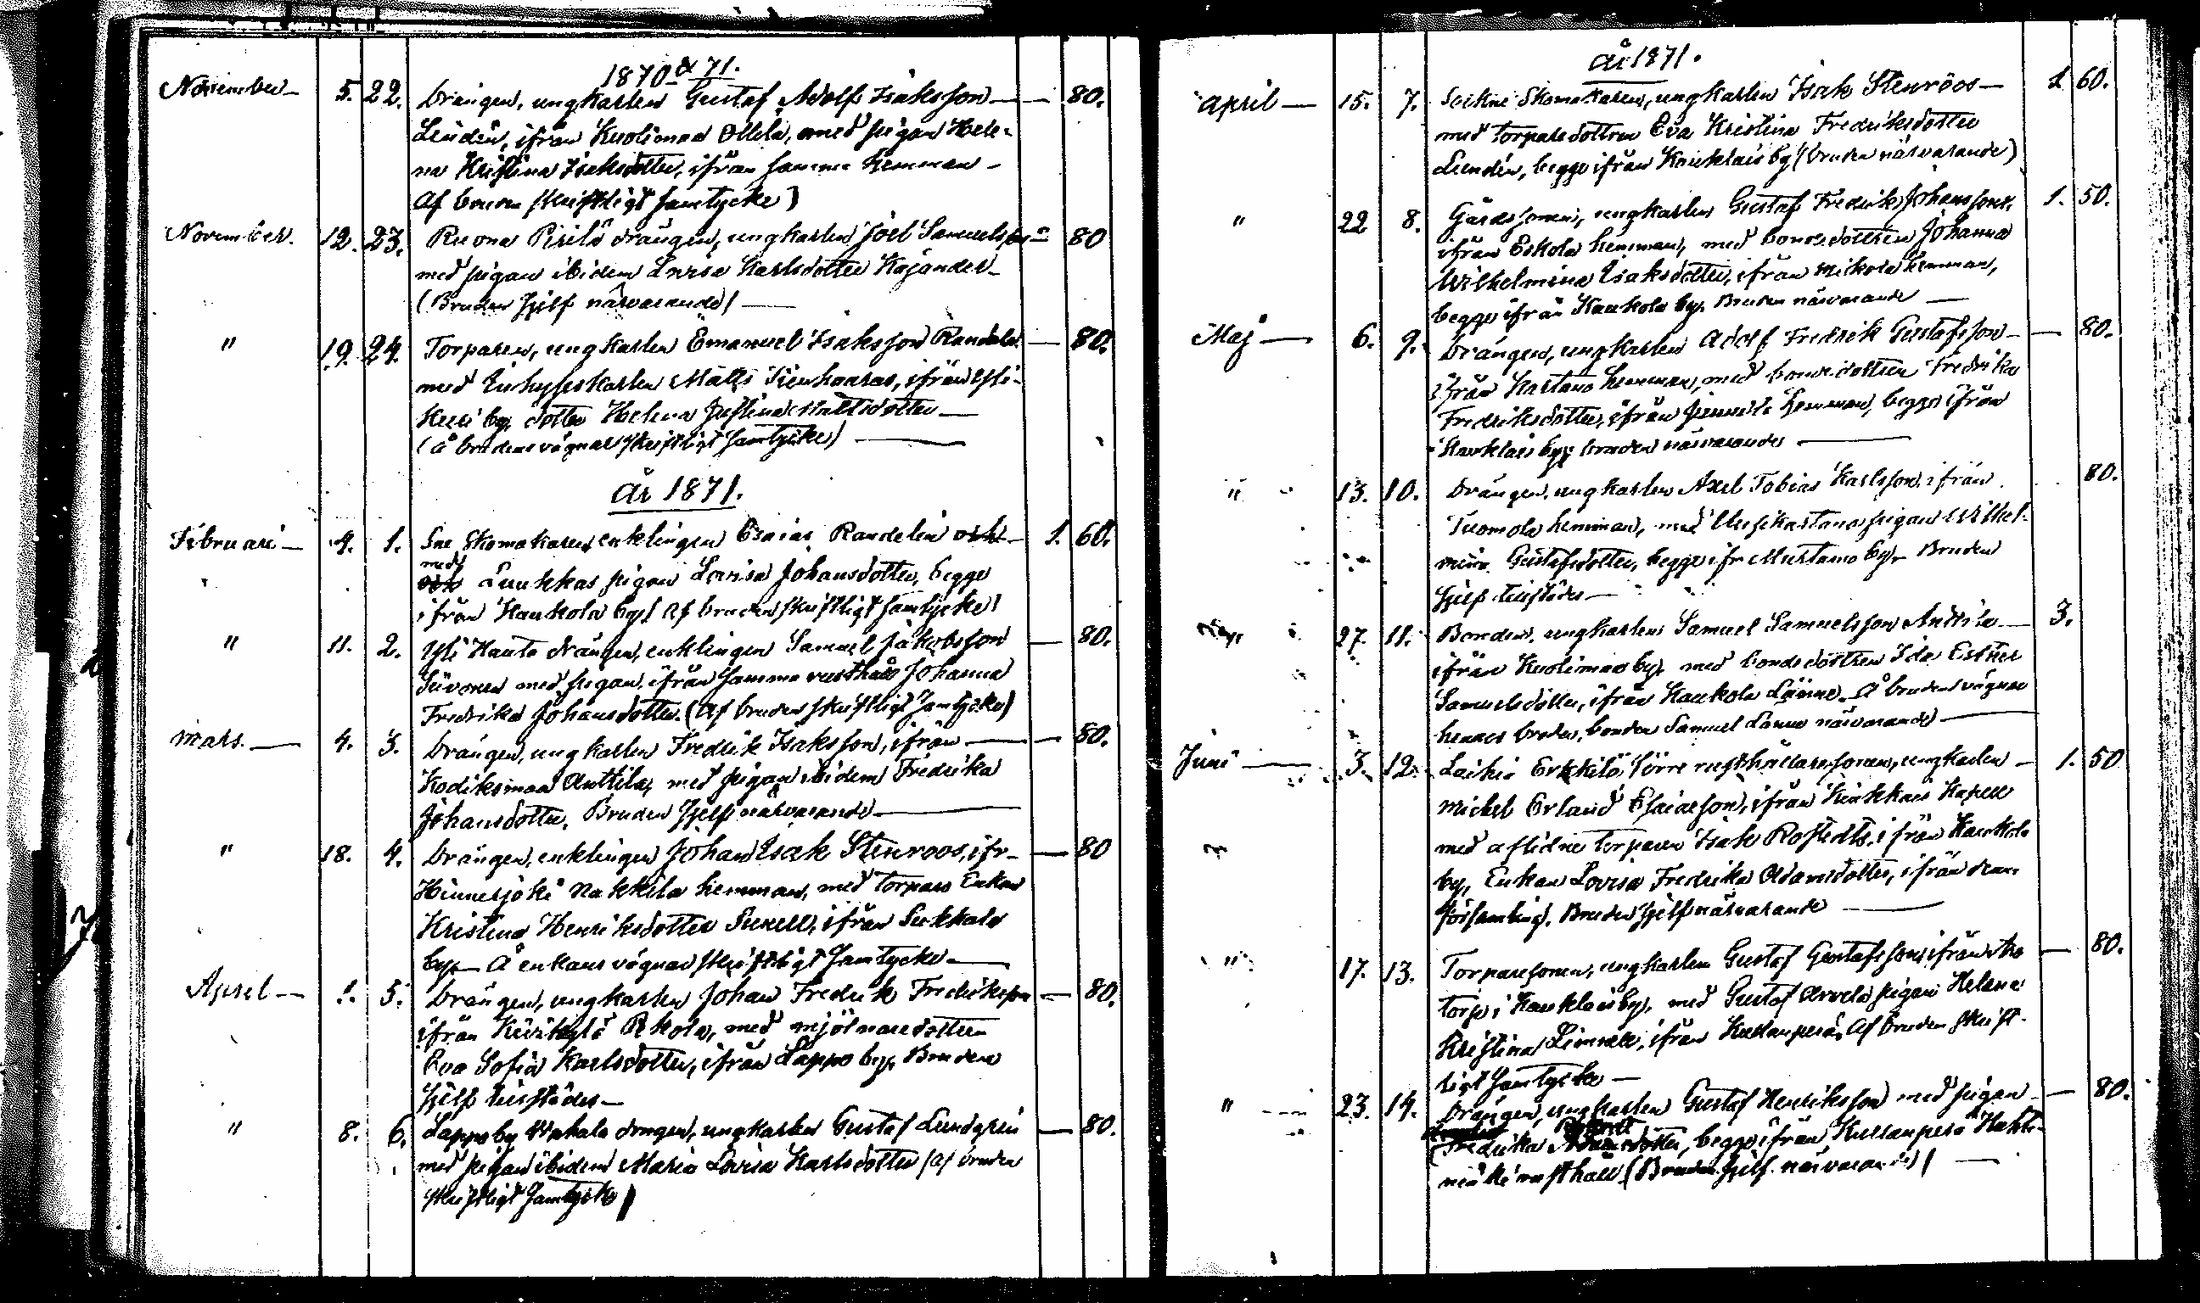 1870 & 71.
November 5. 22. Drängen, ungkarlen Gustaf Adolf Isaksson 80.
Lindén, ifrån Kuolimaa Ollila, med pigan Hele-
na Kristina Isaksdotter, ifrån samma hemman
Af bruden skriftligt samtycke)
November. 12. 23. Ruona Pirilä drängen, ungkarlen Joel Samuelsson 80
med pigan ibidem Lovisa Karlsdotter Kajander
(Bruden sjelf närvarande)
" 19. 24. Torparen, ungkarlen Emanuel Isaksson Randelin 80.
med Inhyseskarlen Matts ifrån Yli-
by dotter Helena Justina Mattsdotter
(å brudens vägnar skriftligt samtycke)
År 1871.
Februari 4. 1. Skomakaren, enklingen Esaias Randelin och 1. 60.
med
och Luukkas pigan Lovisa Johansdotter, begge
ifrån Haukola by (af bruden skriftligt samtycke)
" 11. 2. Yli Hanta drängen, enklingen Samuel Jakobsson 80.
med pigan ifrån samma rusthåll Johanna
Fredrika Johansdotter. (af bruden skriftligt samtycke)
Mars. 4. 3. Drängen, ungkarlen Fredrik Isaksson, ifrån 80.
Kodiksmaa Anttila, med pigan ibidem Fredrika
Johansdotter. Bruden sjelf närvarande
" 18. 4. Drängen, enklingen Johan Isak Stenroos, ifr. 80
Hinnerjoki Nakkila hemman, med Torpare Enkan
Kristina Henriksdotter ifrån
by. Å enkans vägnar skriftligt samtycke
April 1. 5. Drängen, ungkarlen Johan Fredrik Fredriksson 80.
ifrån med mjölnaredottren
Eva Sofia Karlsdotter, ifrån Lappo by. Bruden
sjelf tillstädes
" 8. 6. Lappo by drengen, ungkarlen Gustaf Lundgrén 80.
med pigan ibidem Maria Lovisa Karlsdotter (af bruden
skriftligt samtycke)
År 1871.
April 15. 7. Skomakaren, ungkarlen Isak Stenroos 1 60.
med torparedottren Eva Kristina Fredriksdotter
Lundén, begge ifrån Kauklais by (bruden närvarande)
" 22 8. Gårdssonen, ungkarlen Gustaf Fredrik Johansson, 1. 50.
ifrån Eskola hemman, med bondedottren Johanna
Wilhelmina Isaksdotter, ifrån Mickola hemman,
begge ifrån Haukola by. Bruden närvarande
Maj 6. 9. Drängen, ungkarlen Adolf Fredrik Gustafsson 80.
ifrån Kartano hemman, med bondedottren Fredrika
Fredriksdotter, ifrån hemman, begge ifrån
Kauklais by, bruden närvarande
" 13. 10. Drängen, ungkarlen Axel Tobias Karlsson, ifrån 80.
Tuomola hemman, med Uusikartano pigan Wilhel-
mina Gustafsdotter, begge ifr. Mustamo by. Bruden
sjelf tillstädes
27. 11. Bonden, ungkarlen Samuel Samuelsson Anttila 3.
ifrån Kuolimaa by, med bondedottren Ida Esther
Samuelsdotter, ifrån Haukola Länne. Å brudens vägnar
hennes broder, bonden Samuel Länne närvarande
Juni 3. 12. Laihia Erkkilä, förre rusthållaresonen, ungkarlen 1. 50
Michel Erland Esaiasson, ifrån Kapell
med aflidne torparen Isak Rostedts, ifrån Haukola
by, Enkan Lovisa Fredrika Adamsdotter, ifrån denna
församling. Bruden sjelf närvarande
" 17. 13. Torparesonen, ungkarlen Gustaf Gustafsson, ifrån 80.
torp i Kauklais by, med Gustaf Arvela pigan Helena
Kristina ifrån Kullanperä. Af bruden skrift-
ligt samtycke
" 23. 14. Drängen, ungkarlen Gustaf Henriksson med pigan 80.
Fredrika begge ifrån Kullanperä
rusthåll (Bruden sjelf närvarande)